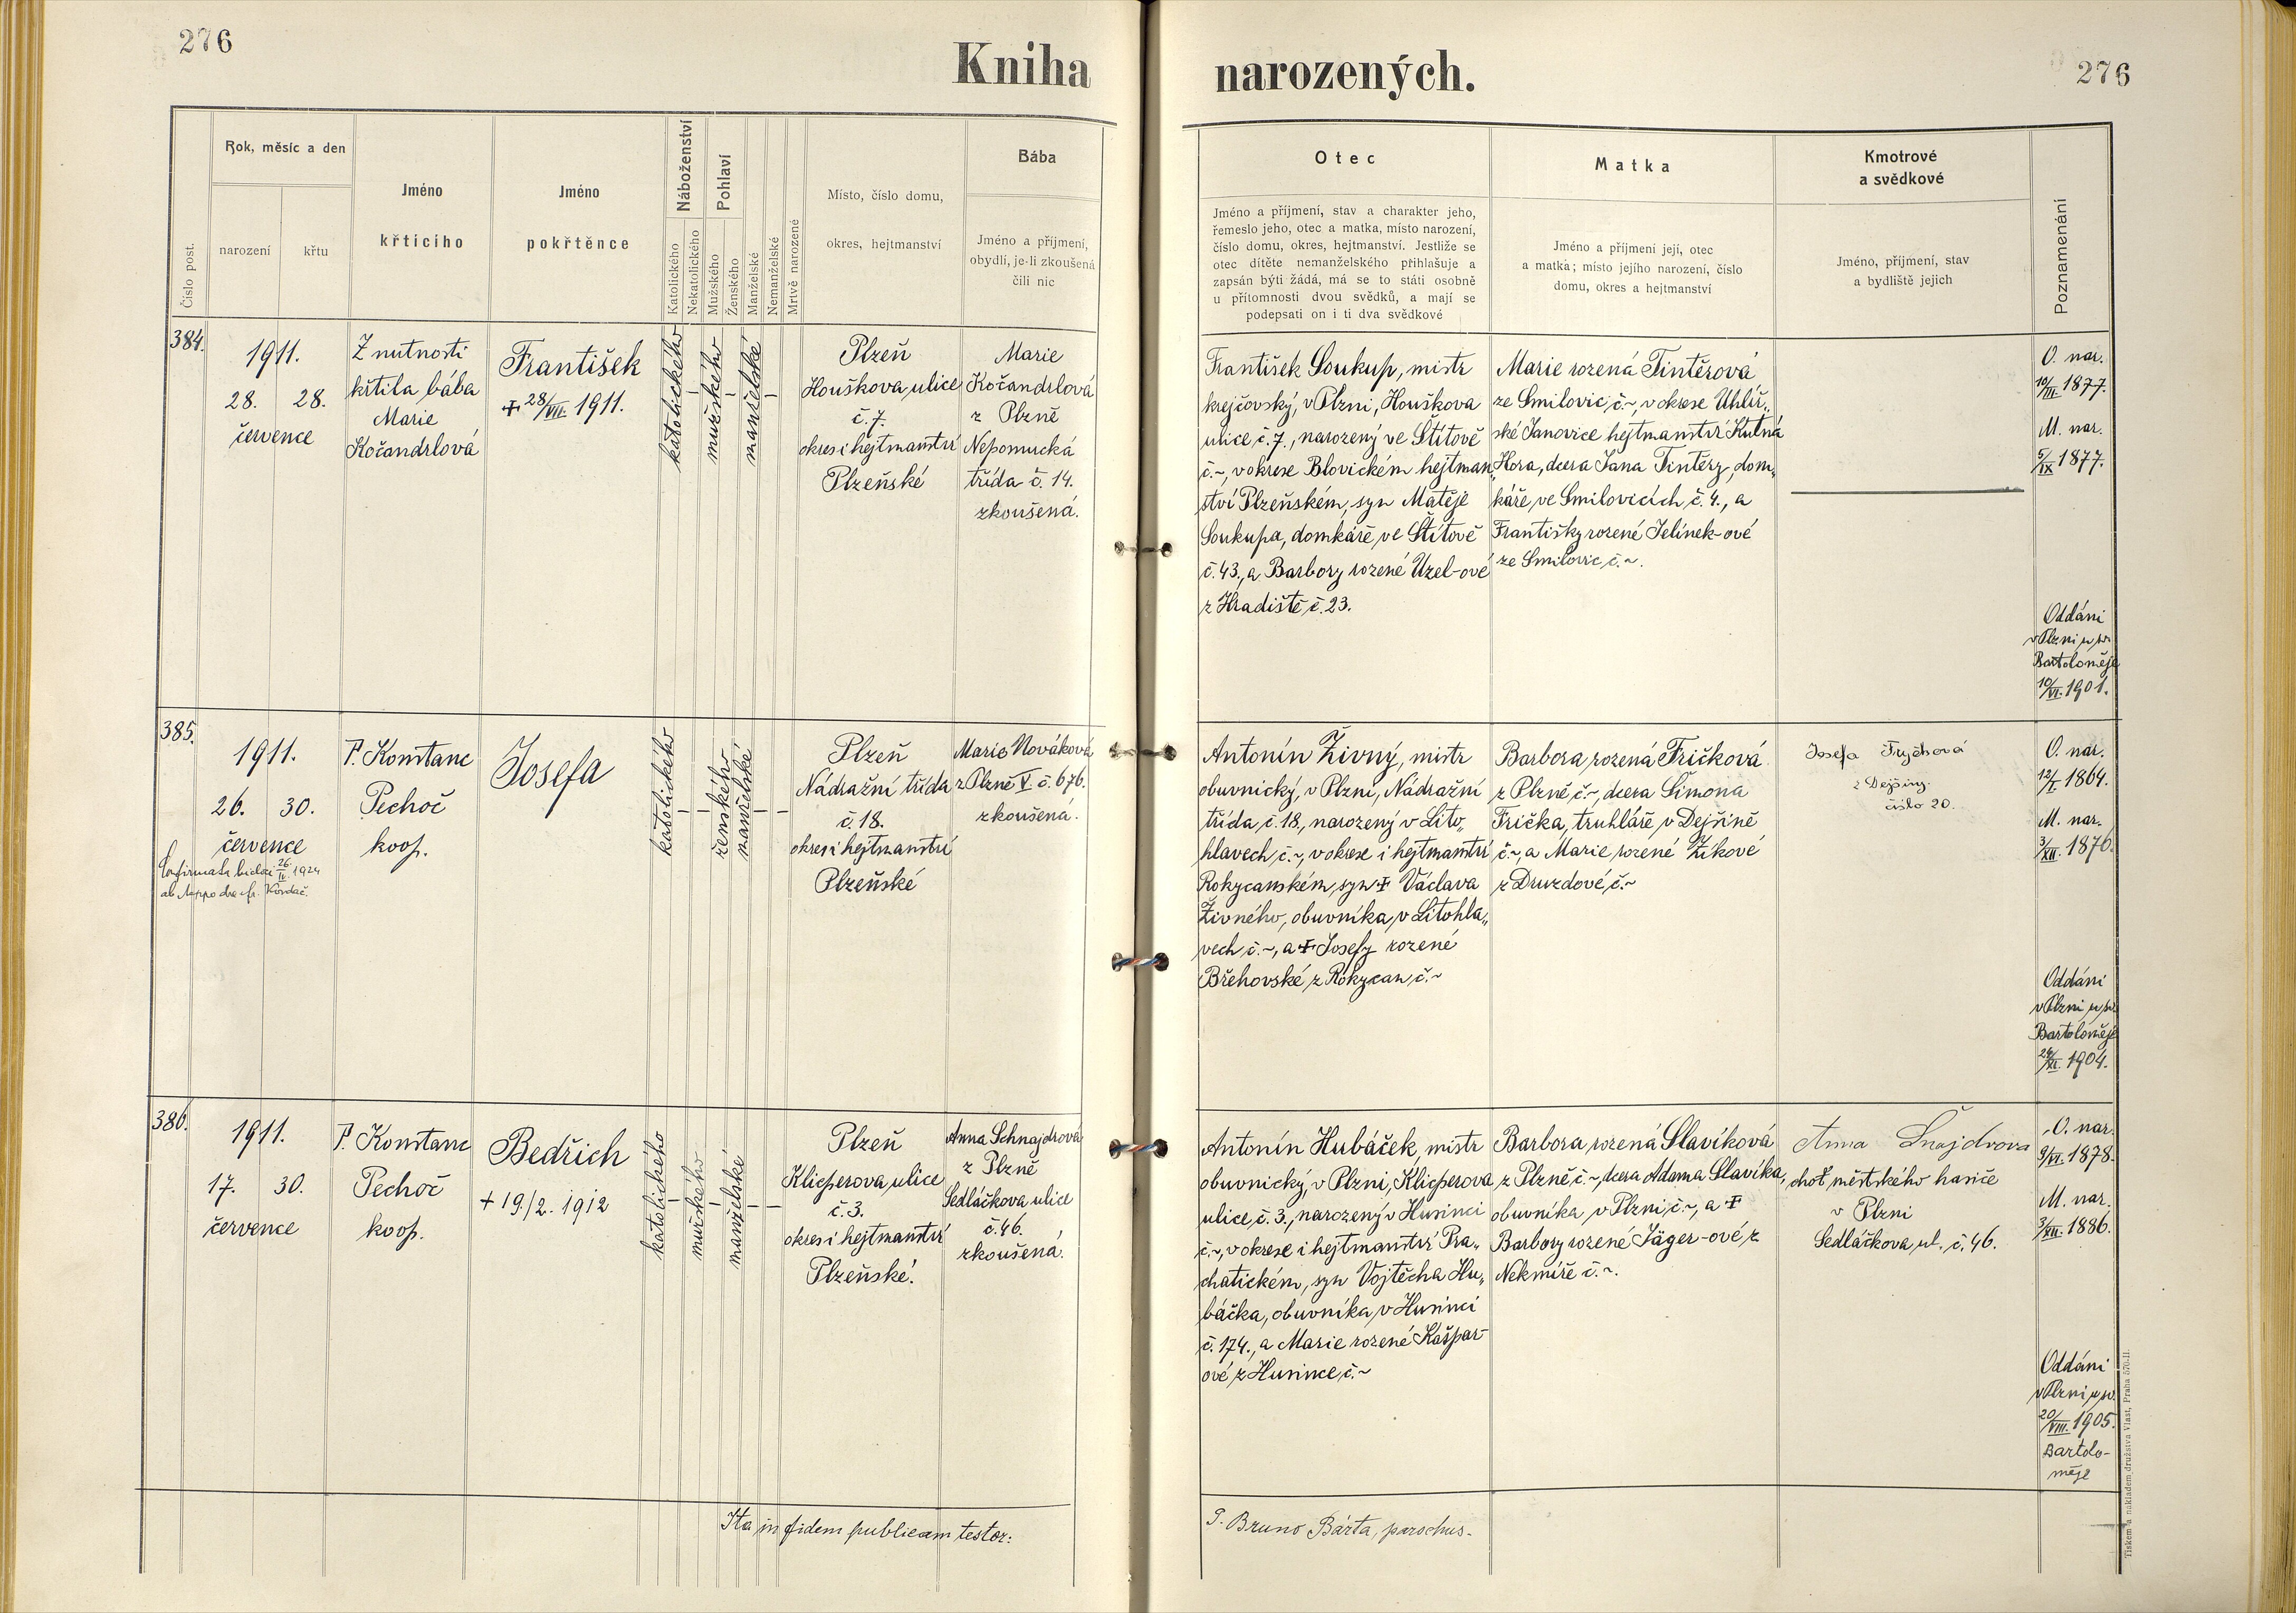 276
Kniha narozených.
276
Číslo post.
Rok, měsíc a den
narození
křtu
Jméno
křticího
Jméno
pokřtěnce
Náboženství
Katolického
Nekatolického
Pohlaví
Mužského
Ženského
Manželské
Nemanželské
Mrtvě narozené
Místo, číslo domu,
okres, hejtmanství
Bába
Jméno a příjmení,
obydlí, je-li zkoušená
čili nic
Otec
Jméno a příjmení, stav a charakter jeho,
řemeslo jeho, otec a matka, místo narození,
číslo domu, okres, hejtmanství. Jestliže se
otec dítěte nemanželského přihlašuje a
zapsán býti žádá, má se to státi osobně
u přítomnosti dvou svědků, a mají se
podepsati on i ti dva svědkové
Matka
Jméno a příjmení její, otec
a matka; místo jejího narození, číslo
domu, okres a hejtmanství
Kmotrové
a svědkové
Jméno, příjmení, stav
a bydliště jejich
Poznamenání
384.
1911.
28. 28.
července
Z nutnosti
křtila bába
Marie
Kočandrlová
František
+ 28/VII. 1911.
katolického
–
mužského
–
manželské
–
Plzeň
Houškova ulice
č. 7.
okres i hejtmanství
Plzeňské
Marie
Kočandrlová
z Plzně
Nepomucká
třída č. 14.
zkoušená.
František Soukup, mistr
krejčovský, v Plzni, Houškova
ulice č. 7., narozený ve Štítově
č. ~, v okrese Blovickém hejtman„
ství Plzeňském, syn Matěje
Soukupa, domkáře ve Štítově
č. 43., a Barbory rozené Uzel-ové
z Hradiště č. 23.
Marie rozená Tintěrová
ze Smilovic, č. ~, v okrese Uhlíř„
ské Janovice hejtmanství Kutná
Hora, dcera Jana Tintěry, dom„
káře ve Smilovicích č. 4., a
Františky rozené Jelínek-ové
ze Smilovic č. ~.
O. nar.
10/III. 1877.
M. nar.
5/IX 1877.
Oddáni
v Plzni u sv.
Bartoloměje
10/VI. 1901.
385.
1911.
26. 30.
července
P. Konstanc
Pechoč
koop.
Josefa
katolického
–
–
ženského
manželské
–
–
Plzeň
Nádražní třída
č. 18.
okres i hejtmanství
Plzeňské
Marie Nováková
z Plzně V. č. 676.
zkoušená.
Antonín Živný, mistr
obuvnický, v Plzni, Nádražní
třída, č. 18., narozený v Lito„
hlavech, č. ~, v okrese i hejtmanství
Rokycanském, syn + Václava
Živného, obuvníka, v Litohla„
vech č. ~, a + Josefy rozené
Břehovské z Rokycan, č. ~
Barbora, rozená Fričková
z Plzně č. ~, dcera Šimona
Frička, truhláře v Dejšině
č. ~, a Marie rozené Žikové
z Druzdové, č. ~
Josefa Fryčhová
z Dejšiny
číslo 20.
O. nar.
12/I. 1864.
M. nar.
3/XII. 1876.
Oddáni
v Plzni u sv.
Bartoloměje
1904.
386.
1911.
17. 30.
července
P. Konstanc
Pechoč
koop.
Bedřich
+ 19./2. 1912
katolického
–
mužského
–
manželské
–
–
Plzeň
Klicperova ulice
č. 3.
okres i hejtmanství
Plzeňské.
Anna Schnajdrová
z Plzně
Sedláčkova ulice
č. 46.
zkoušená.
Antonín Hubáček, mistr
obuvnický, v Plzni, Klicperova
ulice, č. 3., narozený v Husinci
č. ~, v okrese i hejtmanství Pra„
chatickém, syn Vojtěcha Hu„
báčka, obuvníka, v Husinci
č. 174., a Marie rozené Kašpar-
ové z Husince, č. ~
Barbora rozená Slavíková
z Plzně č. ~, dcera Adama Slavíka,
obuvníka v Plzni, č. ~, a +
Barbory rozené Jäger-ové z
Nekmíře č. ~.
Anna Šnajdrova
choť městského hasiče
v Plzni
Sedláčkova ul. č. 46.
O. nar.
9/VI. 1878.
M. nar.
3/XII. 1886.
Oddáni
v Plzni u sv.
20/VIII. 1905.
Bartolo-
měje
Ita in fidem publicam testor:
P. Bruno Bárta, parochus.
Tiskem a nakladem družstva Vlast, Praha 570-II.